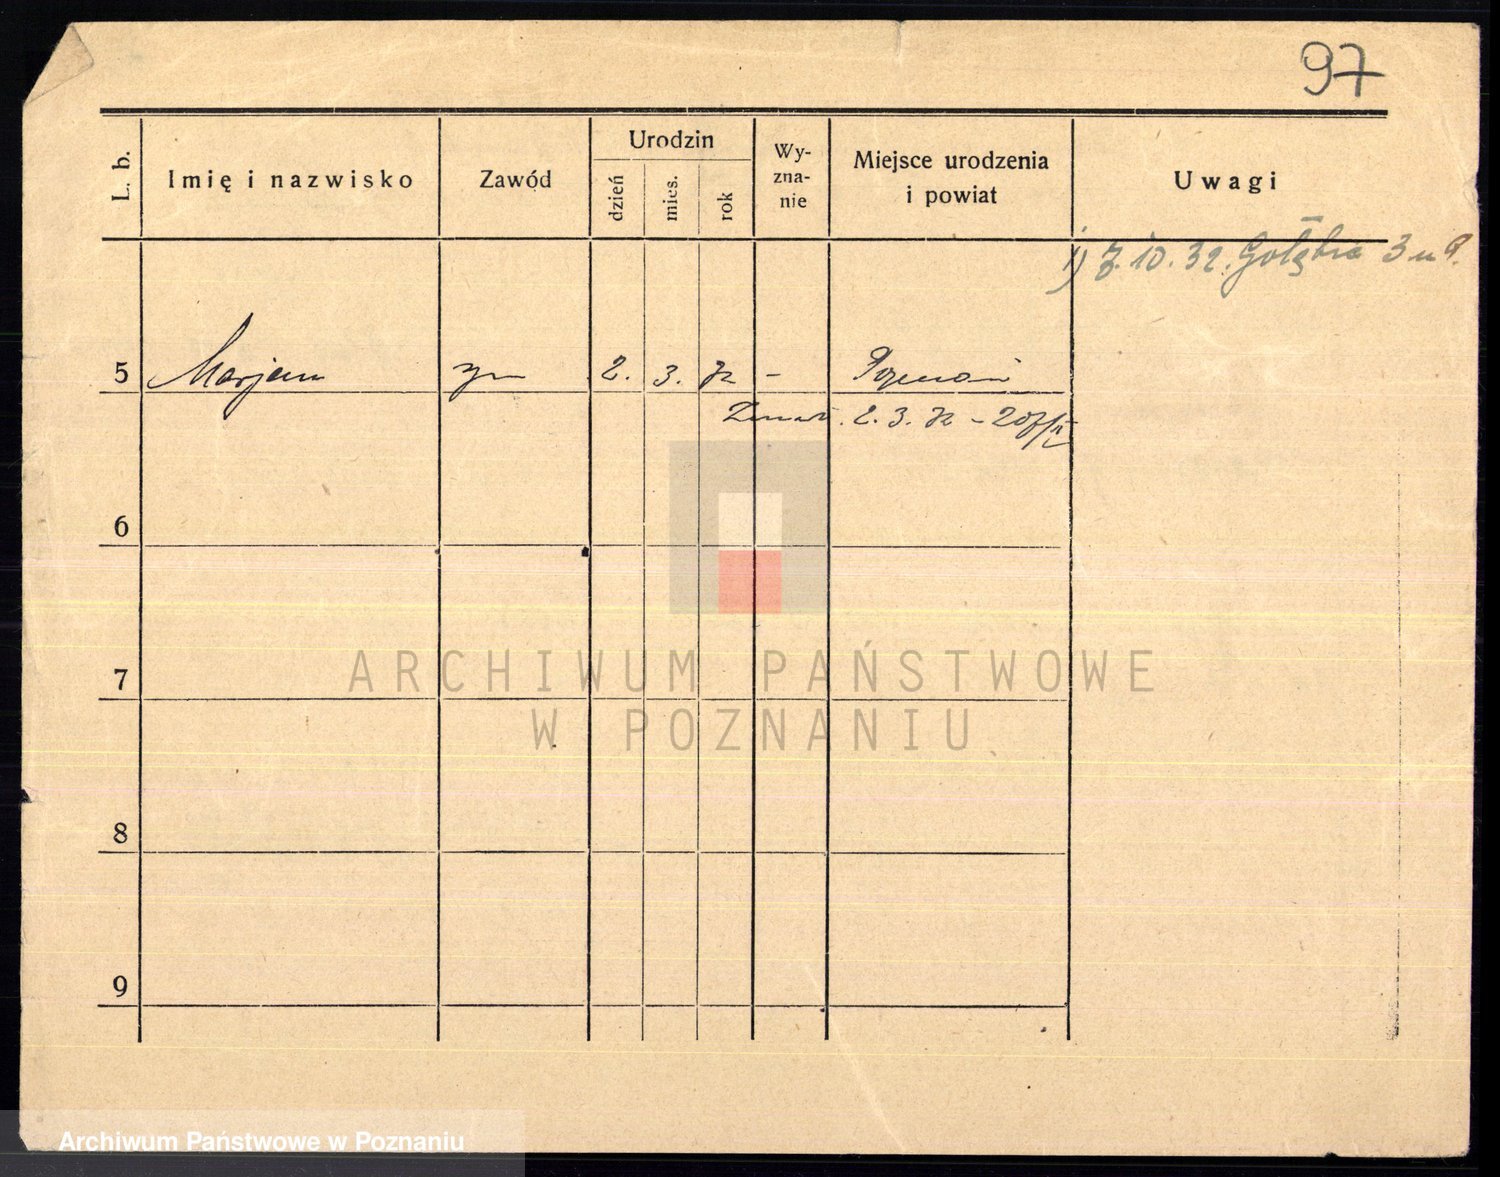 97
L. b.
Imię i nazwisko
Zawód
Urodzin
dzień
mies.
rok
Wy-
zna-
nie
Miejsce urodzenia
i powiat
Uwagi
1) 7. 10. 32. Gołębia 3 u
5 Marjan 2. 3. 32 - Poznań
2. 3. 32 - 207/II
6
7
8
9
ARCHIWUM PAŃSTWOWE
W POZNANIU
Archiwum Państwowe w Poznaniu